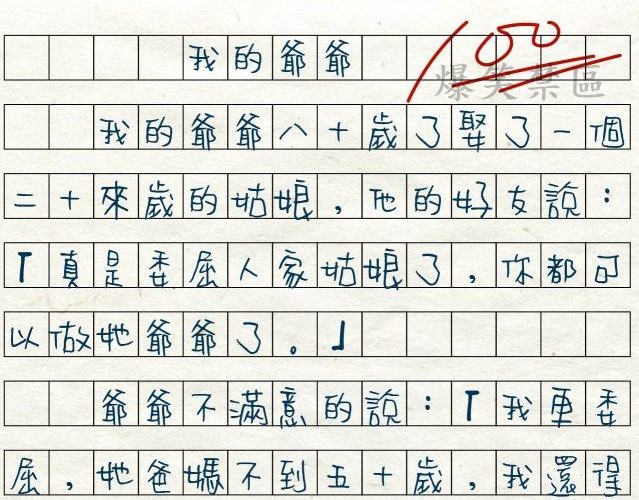 100
我的爺爺
爆笑禁區
我的爺爺八十歲了娶了一個
二十來歲的姑娘，他的好友說：
「真是委屈人家姑娘了，你都可
以做她爺爺了。」
爺爺不滿意的說：「我更委
屈，她爸媽不到五十歲，我還得